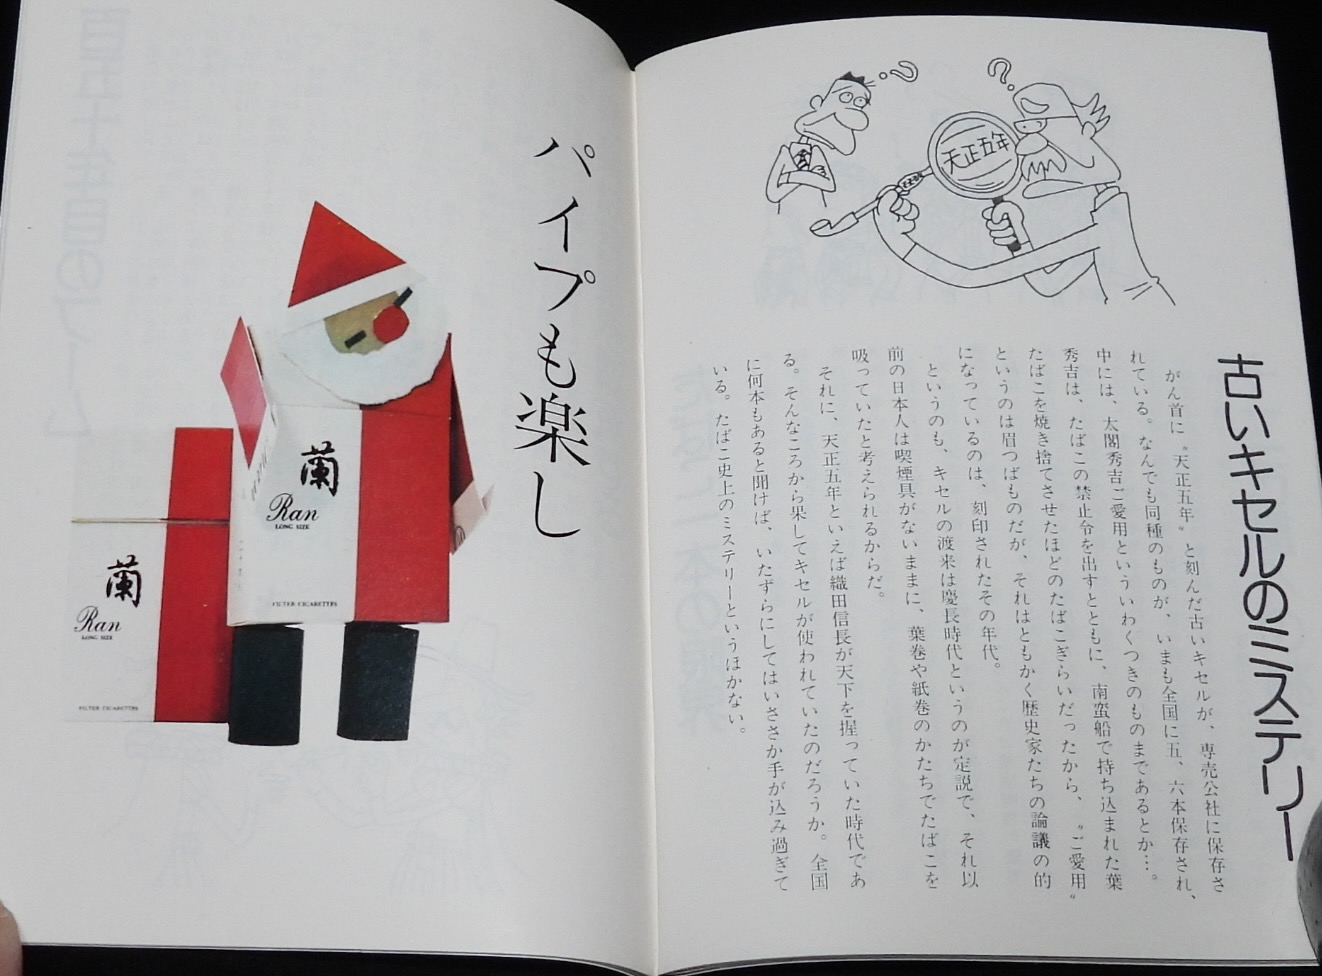 天正五年
古いキセルのミステリー
がん首に〝天正五年〟と刻んだ古いキセルが、専売公社に保存さ
れている。なんでも同種のものが、いまも全国に五、六本保存され、
中には、太閤秀吉ご愛用といういわくつきのものまであるとか…。
秀吉は、たばこの禁止令を出すとともに、南蛮船で持ち込まれた葉
たばこを焼き捨てさせたほどのたばこぎらいだったから、〝ご愛用〟
というのは眉つばものだが、それはともかく歴史家たちの論議の的
になっているのは、刻印されたその年代。
というのも、キセルの渡来は慶長時代というのが定説で、それ以
前の日本人は喫煙具がないままに、葉巻や紙巻のかたちでたばこを
吸っていたと考えられるからだ。
それに、天正五年といえば織田信長が天下を握っていた時代であ
る。そんなころから果してキセルが使われていたのだろうか。全国
に何本もあると聞けば、いたずらにしてはいささか手が込み過ぎて
いる。たばこ史上のミステリーというほかない。
パイプも楽し
蘭
Ran
LONG SIZE
FILTER CIGARETTES
蘭
Ran
LONG SIZE
FILTER CIGARETTES